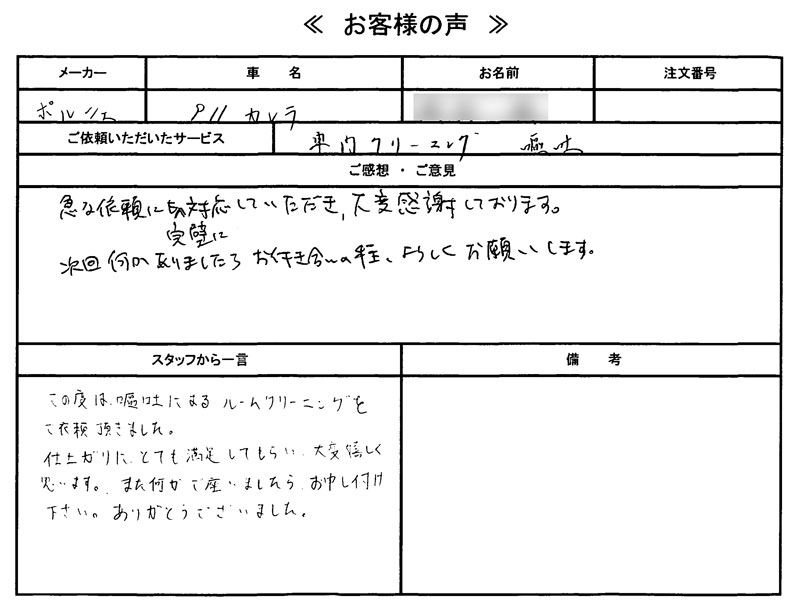 ≪ お客様の声 ≫
メーカー 車 名 お名前 注文番号
ポルシェ 911 カレラ
ご依頼いただいたサービス 車内クリーニング 嘔吐
ご感想・ご意見
急な依頼にも対応していただき、大変感謝しております。
完璧に
次回何かありましたらお付き合いの程、よろしくお願いします。
スタッフから一言 備 考
この度は、嘔吐によるルームクリーニングを
ご依頼頂きました。
仕上がりに、とても満足してもらい、大変嬉しく
思います。また何かご座いましたら、お申し付け
下さい。ありがとうございました。